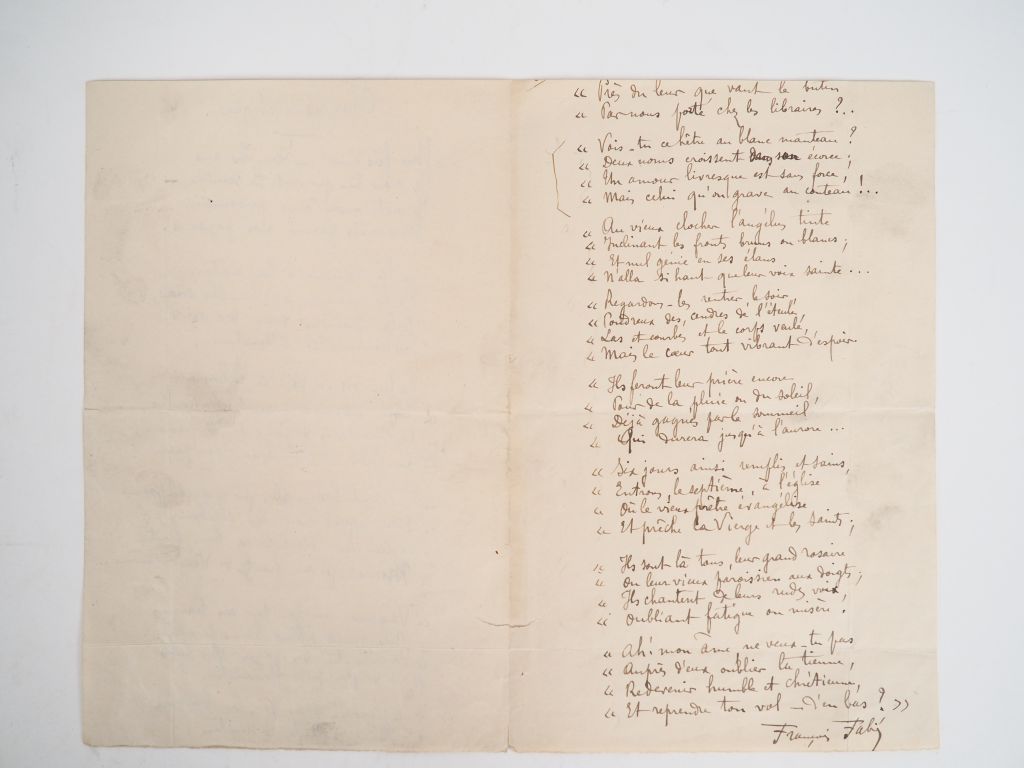 « Près du leur que vaut le butin
« Par nous porté chez les libraires ?..
« Vois-tu ce hêtre au blanc manteau ?
« Deux noms croissent dans son écorce ;
« Un amour livresque est sans force,
« Mais celui qu'on grave au couteau !...
« Au vieux clocher l'angélus tinte
« Inclinant les fronts bruns ou blancs ;
« Et nul génie en ses élans
« N'alla si haut que leur voix sainte...
« Regardons-les rentrer le soir,
« Poudreux des cendres de l'éteule,
« Las et courbés et le corps
« Mais le cœur tout vibrant d'espoir.
« Ils feront leur prière encore
« Pour de la pluie ou du soleil,
« Déjà gagnés par le sommeil
« Qui durera jusqu'à l'aurore...
« Six jours ainsi remplis et sains,
« Entrons, le septième, à l'église
« Où le vieux prêtre évangélise
« Et prêche la Vierge et les Saints ;
« Ils sont là tous, leur grand rosaire
« Ou leur vieux paroissien aux doigts ;
« Ils chantent de leurs rudes voix,
« Oubliant fatigue ou misère.
« Ah ! mon âme, ne veux-tu pas
« Auprès d'eux oublier la tienne,
« Redevenir humble et chrétienne,
« Et reprendre ton vol – d'en bas ? »
François Fabié